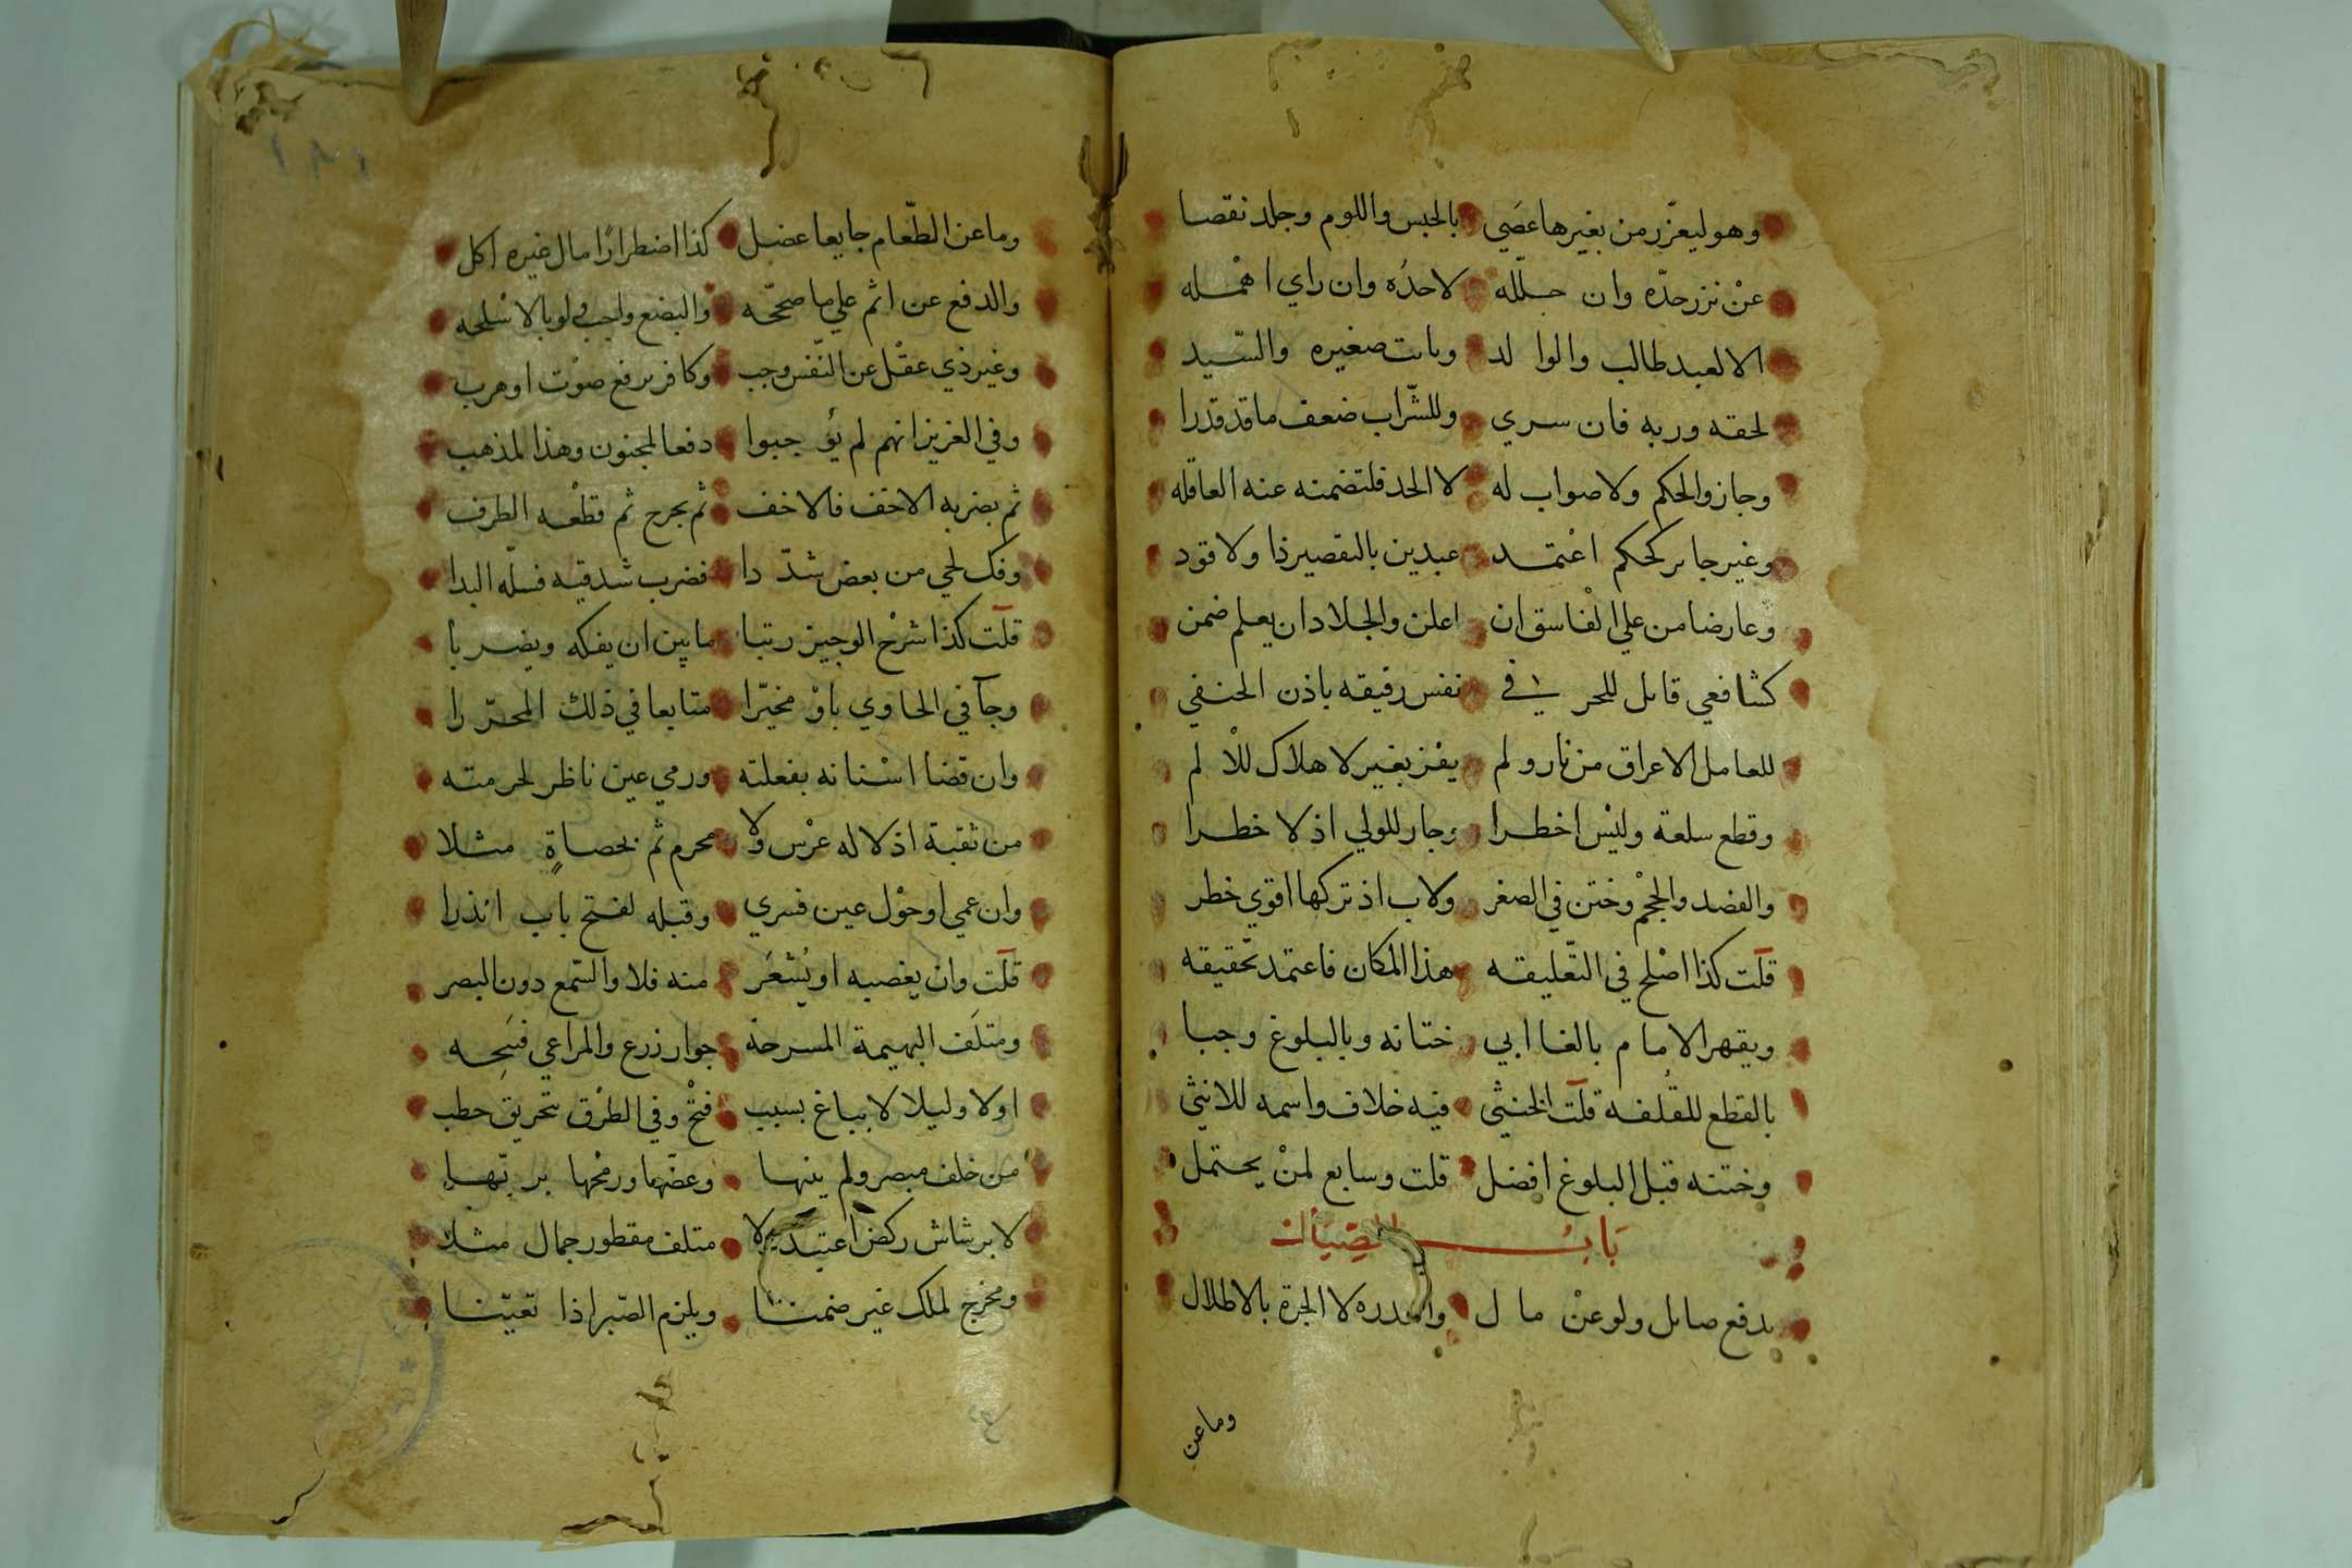 وهو ليعزّر من بغيرها عصَي بالحبس واللوم وجلد نقصا
عنْ نزر حدّه وان جلّله لا حدُه وان راي اهْمله
الا لعبد طالب والوا لد وبابت صغيره والسّيد
لحقه وربه فان سري وللشّراب ضعف ما قد قدرا
وجاز والحكم ولا صواب له لا الحد فلتضمنه عنه العاقله
وغير جاىر كحكم اعْتمد عبدين بالتقصير ذا ولا قود
وعارضا من علي الْفاسق ان اعلن والجلاد ان يعلم ضمن
كشافعي قاىل للحر في نفس رفيقه باذن الحنفي
للعامل الاعراق من نار ولم يفز بغير لا هلاك للألم
وقطع سلعة وليْس اخطرا وجار للولي اذ لا خطرا
والفصد والحجْم وختن في الصغر ولاب اذ تركها اقوي خطر
قلت كذا اصْلح في التّعليقه هذا المكان فاعتمد تحقيقه
ويقهر الامام بالغا ابي ختانه وبالبلوغ وجبا
بالقطع للقُلفة قلت الخنثي فيه خلاف واسمه للانثي
وختنه قبل البلوغ افضل قلت وسابع لمنْ يحتمل
بَابُ الصِّيَال
يدفع صاىل ولو عنْ مال واهدره لا الجرة بالاطلال
وما عن
وما عن الطّعام جايعا عضل كذا اضطرارًا مال غيره اكل
والدفع عن اثم علي ما صحّحه والبضع واجب ولو بالاسْلحه
وغير ذي عقْل عن النّفس وجب وكافر برفع صوْت او هرب
وفي العزيز انهم لم يؤجبوا دفعا لمجنون وهذا المذهب
ثم بضربه الاخف فالاخف ثم بجرح ثم قطْعه الطرف
وفك لحي من بعض شدّ دا فضرب شدقيه فسلّه اليدا
قلت كذا شرْح الوجيز رتبا ما بين ان يفكه ويضربا
وجآ في الحاوي باوْ مخيّرا متابعا في ذلك المحرّرا
وان قضا اسْنانه بفعلته ورمي عين ناظر لحرمته
من ثقبة اذ لا له عرْس ولا محرم ثم بحصاةٍ مثلا
وان عمي او حوْل عين فسري وقبله لفتح باب انذرا
قلت وان يغصبه او يُشْعَر منه فلا والسّمع دون البصر
ومتلَف البهيمة المسرحة جوار زرع والمراعي فسَحه
او لا وليلا لا بباغ بسبب فتْح وفي الطرْق بتحريق حطب
من خلف مبصر ولم ينبها وعضّها ورمْحها بربّها
لا برشاش ركض اعتيد ولا متلف مقطور جمال مثلا
ومخرج لملك غير ضمنا ويلزم الصّبر اذا تعيّنا